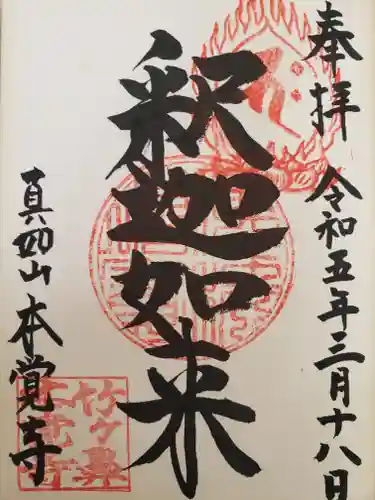 奉拝 令和五年三月十八日
釈迦如来
真如山 本覚寺
竹ケ鼻
本覚寺